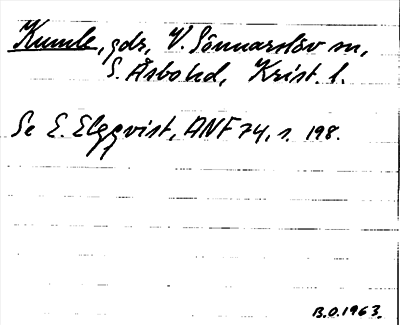 Kumla, gdr, V. Sönnarslöv sn,
S. Åsbo hd, Krist. l.
Se E. Elgqvist, ANF 74, s. 198.
B.O.1963.